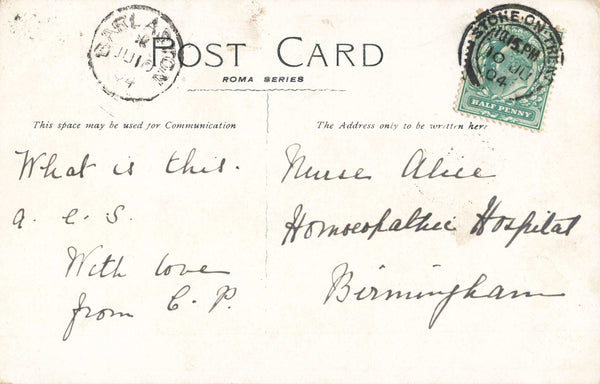 BARLASTON
JU 10
04
POST CARD
ROMA SERIES
STOKE-ON-TRENT
04
HALF PENNY
This space may be used for Communication
What is this.
a. e. S.
With love
from C. P.
The Address only to be written here
Nurse Alice
Homoeopathic Hospital
Birmingham